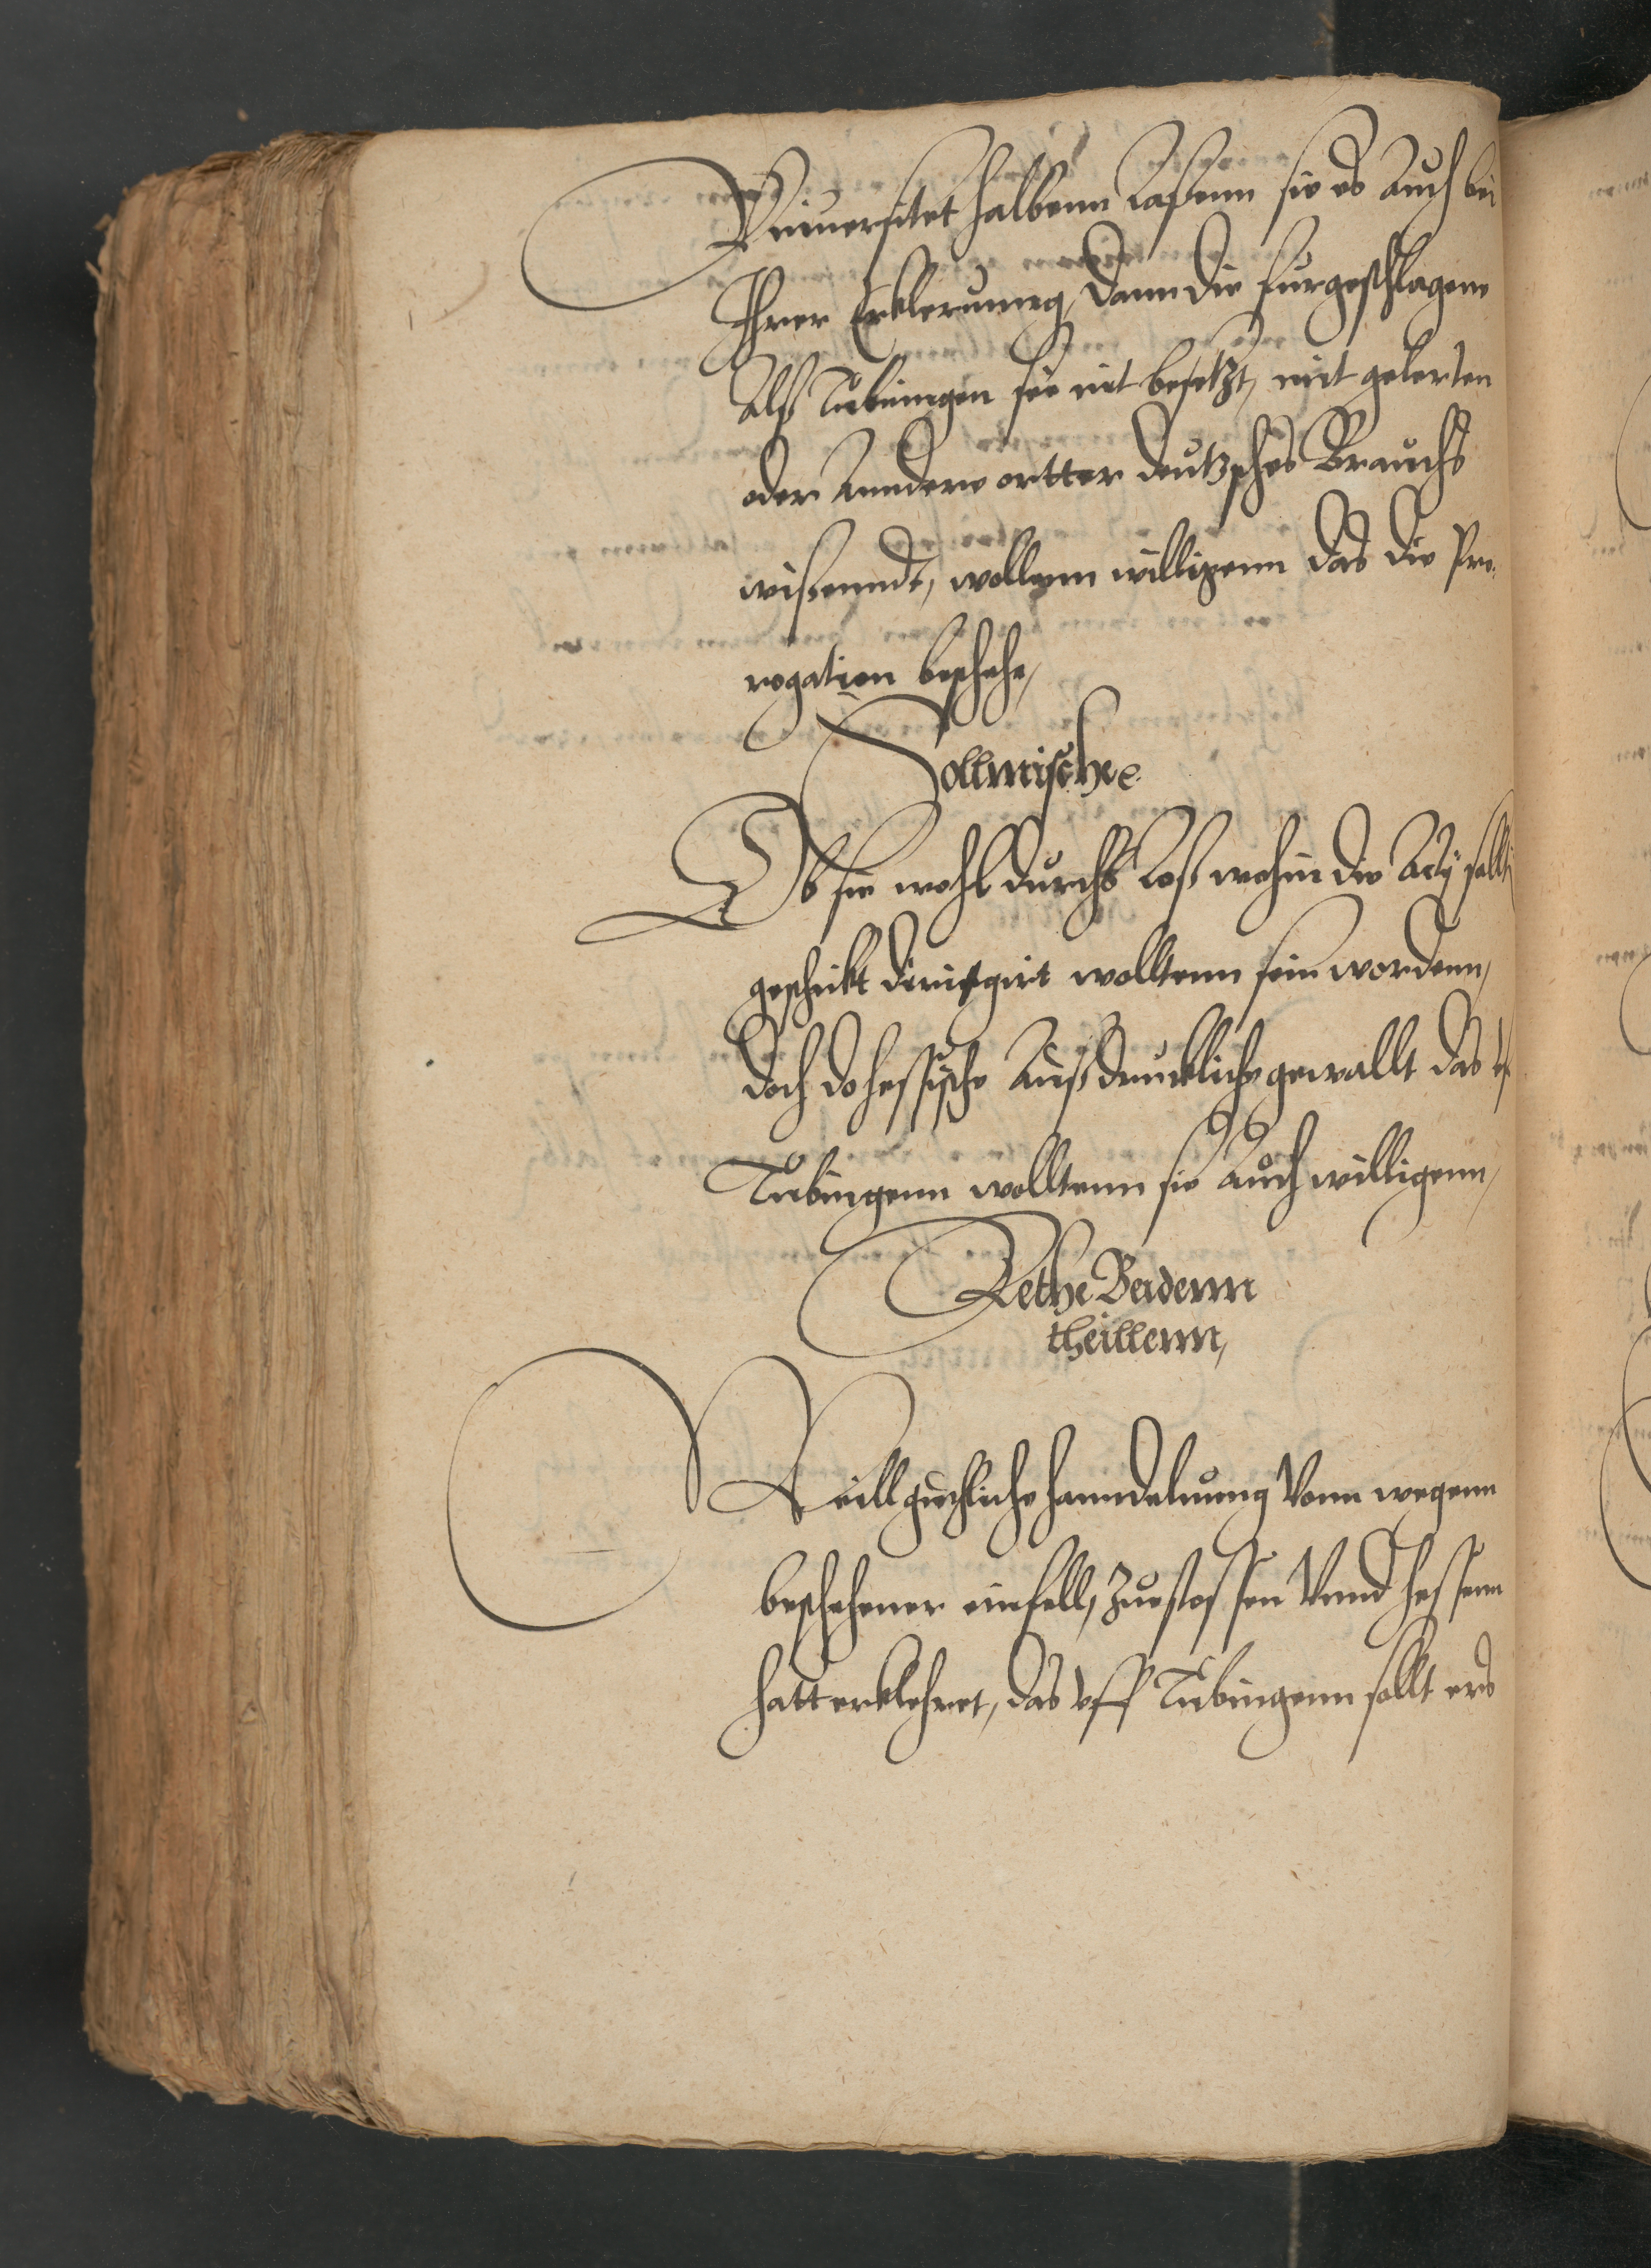 Vniuersitet halbenn Laßenn sie es Auch bei
Ihrer Erklerunng, dann die furgeschlagene
Alß Tubinngen sie nit besetzt, mit gelerten
oder Anndere ortter deutzsches Brauchs
wißenndt, wollenn willigenn das die Pro¬
rogation beschehe,
Sollmische
Ob sie wohl durchs Loß wohin die Acta sollt
geschickt dirigirt wolltenn sein wordenn,
doch do hessische Außdruckliche gewallt das vf
Tubingenn wolltenn sie Auch willigenn,
Rethe Beidenn
theillenn,
Weill guethliche hanndelunng Vonn wegenn
beschehener einfell, zuestossen Vnnd hessenn
hatt erklehret, das vff Tubingenn sollt ers